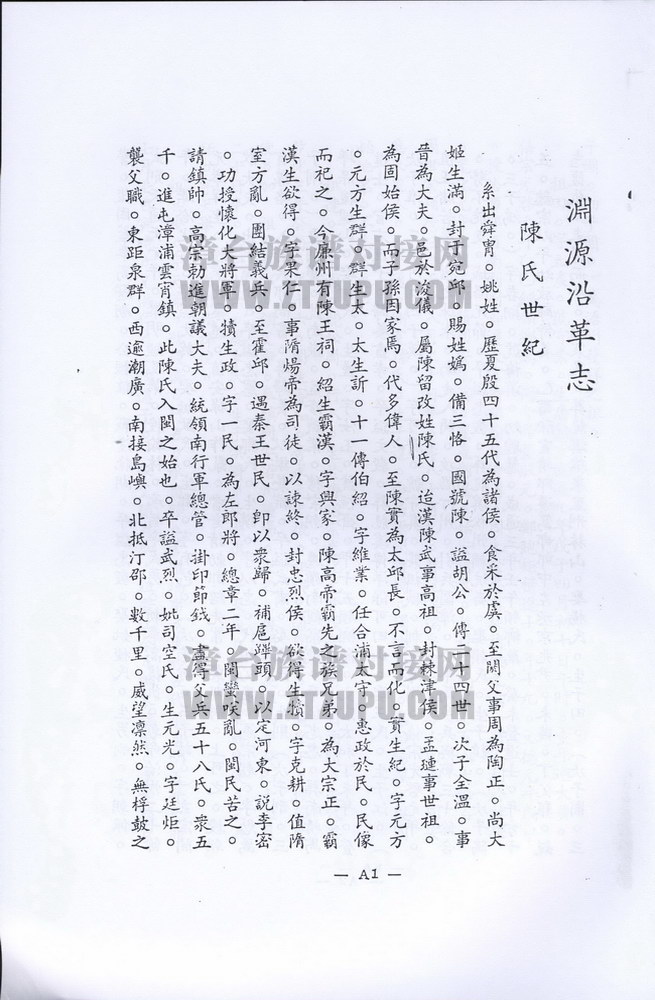 淵源沿革志
陳氏世紀
系出舜胄。姚姓。歷夏殷四十五代為諸侯。食采於虞。至閼父事周為陶正。尚大
姬生滿。封于宛邱。賜姓媯。備三恪。國號陳。謚胡公。傳二十四世。次子全溫。事
晉為大夫。邑於浚儀。屬陳留改姓陳氏。迨漢陳武事高祖。封棘津侯。孟璉事世祖。
為固始侯。而子孫因家焉。代多偉人。至陳實為太邱長。不言而化。實生紀。字元方
。元方生群。群生太。太生訢。十一傳伯紹。字維業。任合浦太守。惠政於民。民像
而祀之。今廉州有陳王祠。紹生霸漢。字興家。陳高帝霸先之族兄弟。為大宗正。霸
漢生欲得。字果仁。事隋煬帝為司徒。以諫終。封忠烈侯。欲得生犢。字克耕。值隋
室方亂。團結義兵。至霍邱。遇秦王世民。即以衆歸。補扈蹕頭。以定河東。說李密
。功授懷化大將軍。犢生政。字一民。為左郎將。總章二年。閩蠻啖亂。閩民苦之。
請鎮帥。高宗勅進朝議大夫。統領南行軍總管。掛印節鉞。盡得父兵五十八氏。衆五
千。進屯漳浦雲宵鎮。此陳氏入閩之始也。卒謚武烈。妣司空氏。生元光。字廷炬。
襲父職。東距泉群。西逾潮廣。南接島嶼。北抵汀邵。数千里。威望凛然。無桴鼓之
— A1 —
漳台族谱对接网
WWW.ZTZUPU.COM
漳台族谱对接网
WWW.ZTZUPU.COM